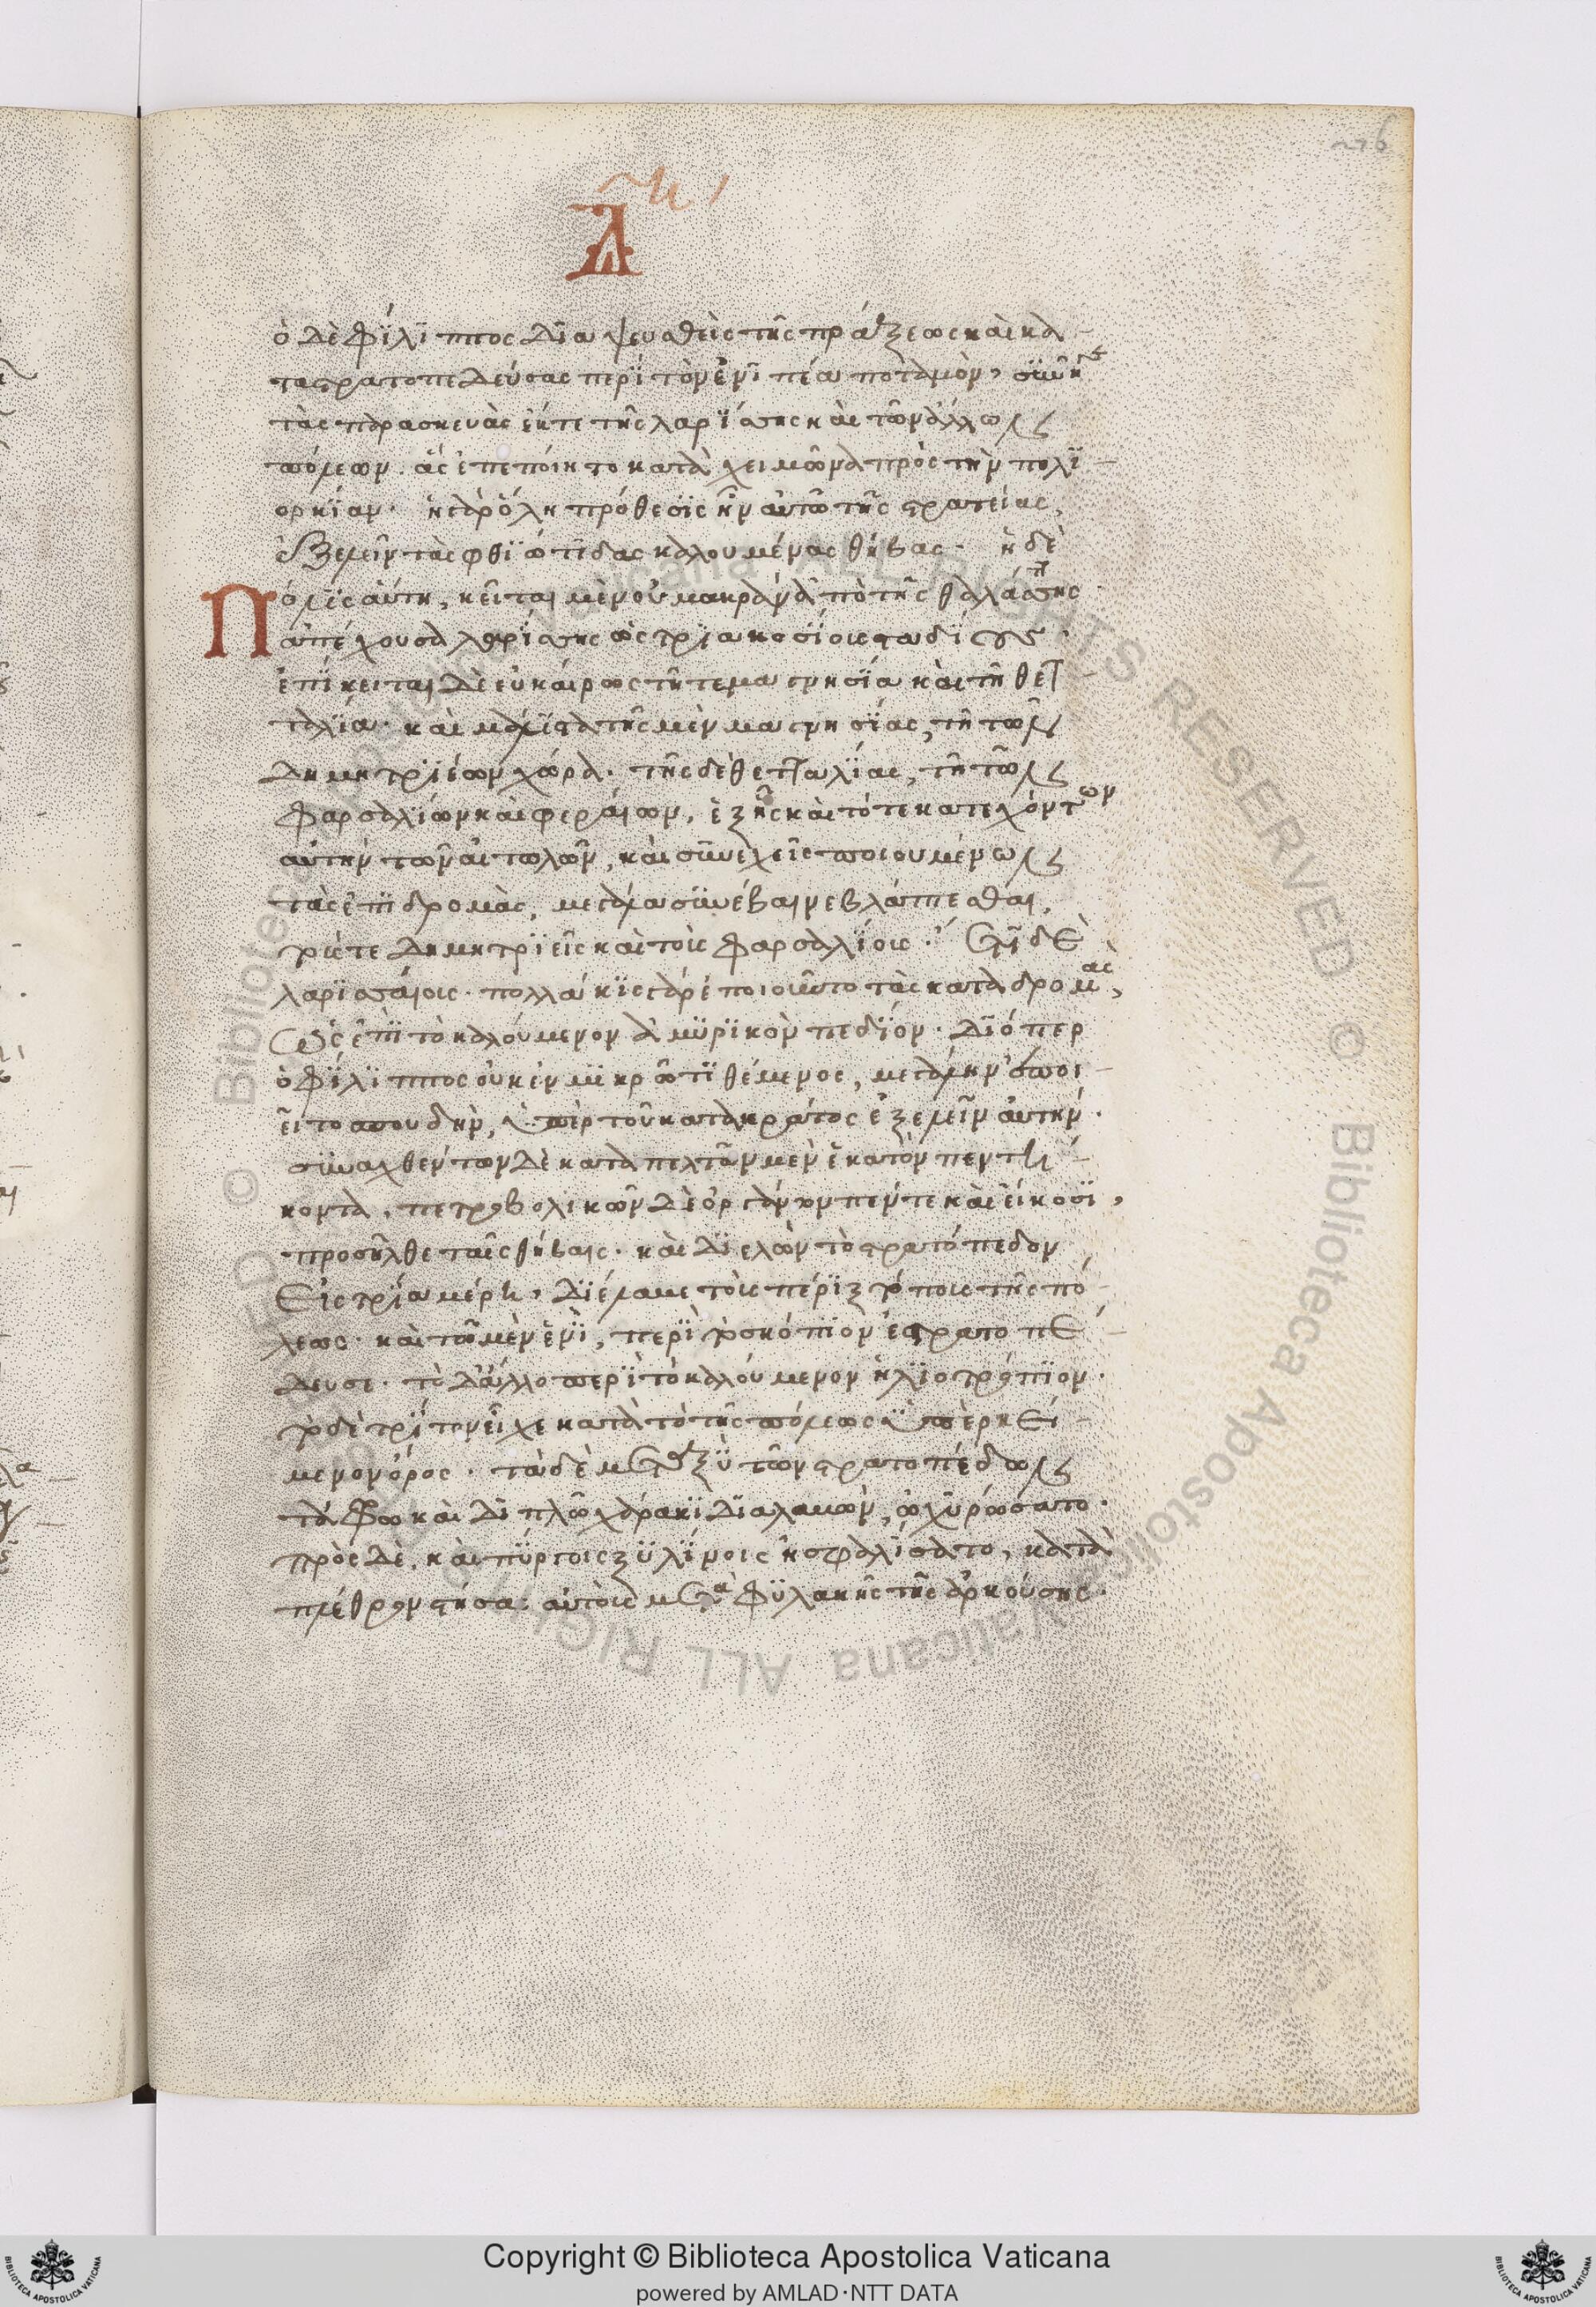 276
Λ̅ η̅
ὁ δὲ φίλϊππος δϊαψευσθεὶς τῆς πράξεως καὶ κα
ταστρατοπεδεύσας περὶ τὸν ἐνιπέα ποταμὸν, συνῆγε
τὰς παρασκευὰς ἔκ τε τῆς λαρίσσης καὶ τῶν ἄλλων
πόλεων. ἃς ἐπεποίητο κατὰ χειμῶνα πρὸς τὴν πολϊ
ορκίαν. ἡ γὰρ ὅλη πρόθεσις ἦν αὐτῶ τῆς στρατείας,
ἐξελεῖν τὰς φθϊώτιδας καλουμένας θήβας. ἡ δὲ
Πόλις αὕτη, κεῖται μὲν οὐ μακρὰν ἀπὸ τῆς θαλάττης
ἀπέχουσα λαρίσσης ὡς τριακοσίους σταδίους.
ἐπίκειται δὲ εὐκαίρως τῆ τε μαγνησία καὶ τῆ θετ
ταλία. καὶ μάλιστα τῆς μὲν μαγνησίας, τῆ τῶν
δημητριέων χώρα. τῆς δὲ θετταλίας, τῆ τῶν
φαρσαλίων καὶ φεραίων, ἐξ ἧς καὶ τότε κατεχόντων
αὐτὴν τῶν αἰτωλῶν, καὶ συνεχεῖς ποιουμένων
τὰς ἐπιδρομὰς, μεγάλα συνέβαινε βλάπτεσθαι,
τούς τε δημητριεῖς καὶ τοὺς φαρσαλίους. ἔτι δὲ
λαρισσαίους. πολλάκις γὰρ ἐποιοῦντο τὰς καταδρομὰς,
ἕως ἐπὶ τὸ καλούμενον ἀμυρικὸν πεδίον. διόπερ
ὁ φίλιππος οὐκ ἐν μικρῶ τιθέμενος, μεγάλην ἐποι
εῖτο σπουδὴν, ὑπὲρ τοῦ κατὰ κράτος ἐξελεῖν αὐτήν.
συναχθέντων δὲ καταπελτῶν μὲν ἑκατὸν πεντή
κοντα, πετροβολικῶν δὲ ὀργάνων πέντε καὶ εἴκοσι,
προσῆλθε ταῖς θήβαις. καὶ διελὼν τὸ στρατόπεδον
εἰς τρία μέρη, διέλαβε τοὺς πέριξ τόπους τῆς πό
λεως. καὶ τῶ μὲν ἑνὶ, περὶ τὸ σκόπιον ἐστρατοπέ
δευσε. τὸ δ’ ἄλλο περὶ τὸ καλούμενον ἡλιοτρόπιον.
τὸ δὲ τρίτον εἶχε κατὰ τὸ τῆς πόλεως ὑπερκεί
μενον ὄρος. τὰ δὲ μεταξὺ τῶν στρατοπέδων
τάφρω καὶ διπλῶ χάρακι διαλαβὼν, ὠχυρώσατο.
πρὸς δὲ, καὶ πύργοις ξυλίνοις ἠσφαλίσατο, κατὰ
πλέθρον στήσας αὐτοὺς μετὰ φυλακῆς τῆς ἀρκούσης.
Copyright © Biblioteca Apostolica Vaticana
powered by AMLAD·NTT DATA